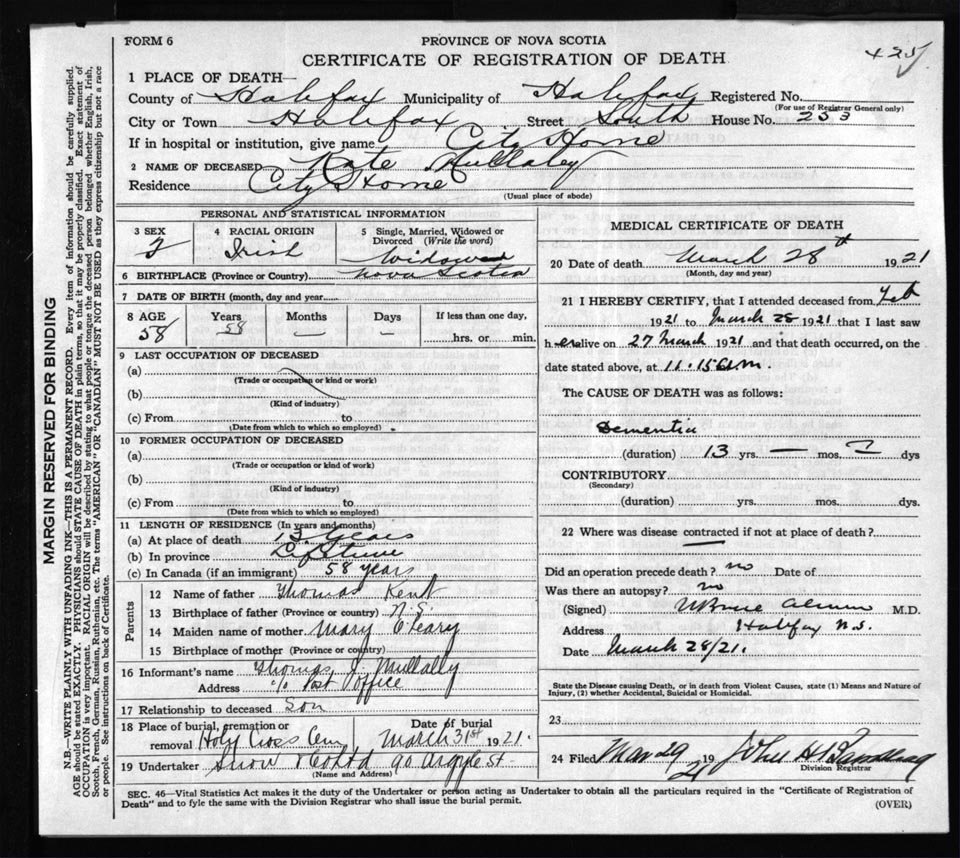 FORM 6
PROVINCE OF NOVA SCOTIA
CERTIFICATE OF REGISTRATION OF DEATH
425
1 PLACE OF DEATH—
County of Halifax Municipality of Halifax Registered No.
(For use of Registrar General only)
City or Town Halifax Street South House No. 253
If in hospital or institution, give name City Home
2 NAME OF DECEASED Kate Mullaley
Residence City Home
(Usual place of abode)
PERSONAL AND STATISTICAL INFORMATION
3 SEX
4 RACIAL ORIGIN Irish
5 Single, Married, Widowed or Divorced (Write the word) Widowed
6 BIRTHPLACE (Province or Country) Nova Scotia
7 DATE OF BIRTH (month, day and year
8 AGE 58 Years 58 Months — Days — If less than one day, hrs. or min.
9 LAST OCCUPATION OF DECEASED
(a)
(Trade or occupation or kind or work)
(b)
(Kind of industry)
(c) From to
(Date from which to which so employed)
10 FORMER OCCUPATION OF DECEASED
(a)
(Trade or occupation or kind of work)
(b)
(Kind of industry)
(c) From to
(Date from which to which so employed)
11 LENGTH OF RESIDENCE (In years and months)
(a) At place of death 13 years
(b) In province Life time
(c) In Canada (if an immigrant) 58 years
Parents
12 Name of father Thomas Kent
13 Birthplace of father (Province or country) N.S.
14 Maiden name of mother Mary O'Leary
15 Birthplace of mother (Province or country)
16 Informant's name Thomas J. Mullally
Address c/o Post Office
17 Relationship to deceased Son
18 Place of burial, cremation or removal Holy Cross Cem Date of burial March 31st 1921.
19 Undertaker Snow & Co Ltd 90 Argyle St.
(Name and Address)
MEDICAL CERTIFICATE OF DEATH
20 Date of death March 28th 1921
(Month, day and year)
21 I HEREBY CERTIFY, that I attended deceased from Feb
1921 to March 28 1921 that I last saw
her alive on 27 March 1921 and that death occurred, on the
date stated above, at 11.15 a.m.
The CAUSE OF DEATH was as follows:
Dementia
(duration) 13 yrs. — mos. dys
CONTRIBUTORY
(Secondary)
(duration) yrs. mos. dys.
22 Where was disease contracted if not at place of death?
Did an operation precede death? no Date of
Was there an autopsy? no
(Signed) M.D.
Address Halifax N.S.
Date March 28/21.
State the Disease causing Death, or in death from Violent Causes, state (1) Means and Nature of
Injury, (2) whether Accidental, Suicidal or Homicidal.
23
24 Filed 19 21 John H
Division Registrar
SEC. 46—Vital Statistics Act makes it the duty of the Undertaker or person acting as Undertaker to obtain all the particulars required in the "Certificate of Registration of
Death" and to fyle the same with the Division Registrar who shall issue the burial permit.
(OVER)
MARGIN RESERVED FOR BINDING
N.B.—WRITE PLAINLY WITH UNFADING INK—THIS IS A PERMANENT RECORD. Every item of information should be carefully supplied.
AGE should be stated EXACTLY. PHYSICIANS should STATE CAUSE OF DEATH in plain terms, so that it may be properly classified. Exact statement of
OCCUPATION is very important. RACIAL ORIGIN will be described by stating to what people or tongue the deceased person belonged whether English, Irish,
Scotch, French, German, Russian, Ruthenian, etc. The terms "AMERICAN" OR "CANADIAN" MUST NOT BE USED as they express citizenship but not a race
or people. See instructions on back of Certificate.